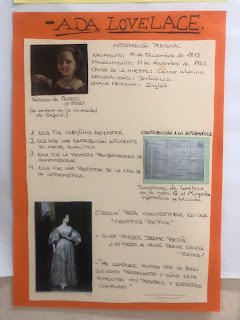 -ADA LOVELACE.
INFORMACIÓN PERSONAL
NACIMIENTO: 10 de Diciembre de 1815
FALLECIMIENTO: 27 de Noviembre de 1852
CAUSA DE LA MUERTE: Cáncer uterino.
NACIONALIDAD: Británica
LENGUA MATERNA: Inglés
Retrato de
(se conserva en la universidad
de Oxford)
1. ELLA FUE MATEMÁTICA.
2. ELLA HIZO UNA CONTRIBUCIÓN INFLUYENTE
3. ELLA FUE LA PRIMERA PROGRAMADORA DE
4. ELLA FUE UNA PROFETISA DE LA ERA DE
LA INFORMÁTICA.
CONTRIBUCIÓN A LA INFORMÁTICA
Diagrama de Lovelace
de la nota G, el
informático publicado
CRECIÓ PARA CONVERTIRSE EN UNA
"CIENTÍFICA POÉTICA"
- SI NO PUEDES DARME POESÍA,
¿NO PUEDES AL MENOS DARME CIENCIA
POÉTICA?
- "ME COMPLACE MUCHO VER LO BIEN
QUE ESTOY PROGRESANDO Y CÓMO ESTA
ESFUERZO
CONTINUO."